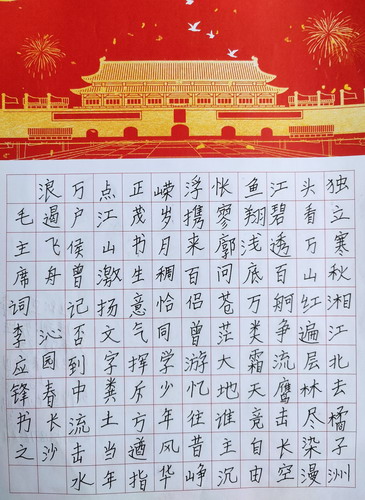 独立寒秋湘江北去橘子洲
头看万山红遍层林尽染漫
江碧透百舸争流鹰击长空
鱼翔浅底万类霜天竞自由
怅寥廓问苍茫大地谁主沉
浮携来百侣曾游忆往昔峥
嵘岁月稠恰同学少年风华
正茂书生意气挥斥方遒指
点江山激扬文字粪土当年
万户侯曾记否到中流击水
浪遏飞舟 沁园春长沙
毛主席词李应锋书之